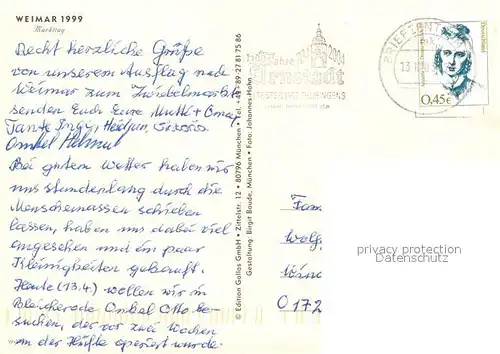 WEIMAR 1999
Markttag
Recht herzliche Grüße
von unserem Ausflug nach
Weimar zum Zwiebelmarkt
senden Euch Eure Mutti + Omay
Tante Ingy, Heidrun,
Onkel Helmut
Bei gutem Wetter haben wir
uns stundenlang durch die
Menschenmassen schieben
lassen, haben uns dabei viel
angesehen und ein paar
Kleinigkeiten gekauft.
Heute (13.4.) wollen wir in
Bleicherode Onkel Otto be-
suchen, der vor zwei Wochen
an der Hüfte operiert wurde.
© Edition Gallas GmbH • Zittelstr. 12 • 80796 München • Tel. +49-89-27 81 75 86
Gestaltung: Birgit Boude, München • Foto: Johannes Hahn
Jahre
Arnstadt
THÜRINGENS
BRIEFZENTRUM
0,45€
Deutschland
Fam.
Wolfg.
0172
privacy protection
Datenschutz